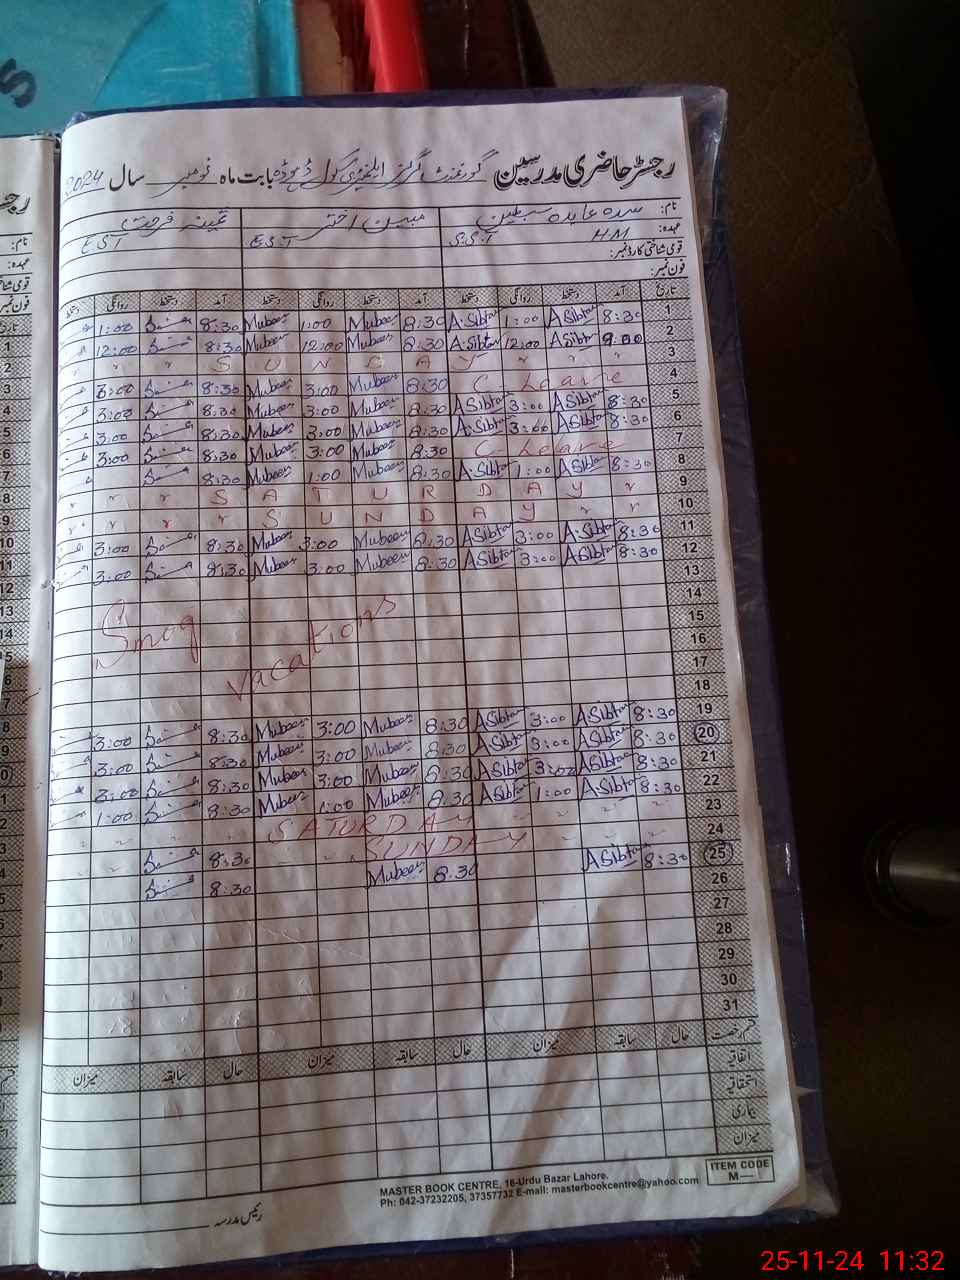 رجسٹر حاضری مدرسین گورنمنٹ گرلز ایلیمنٹری سکول ڈہوڈہ بابت ماہ نومبر سال 2024
نام: سیدہ عابدہ سبطین مبین اختر ثمینہ فرحت
عہدہ: H.M S.S.T E.S.T E.S.T
قومی شناختی کارڈ نمبر:
فون نمبر:
تاریخ آمد دستخط روانگی دستخط آمد دستخط روانگی دستخط آمد دستخط روانگی دستخط
1 8:30 A.Sibtan 1:00 A.Sibtan 8:30 Mubeen 1:00 Mubeen 8:30 1:00
2 9:00 A.Sibtan 12:00 A.Sibtan 8:30 Mubeen 12:00 Mubeen 8:30 12:00
3 SUNDAY
4 C. Leave 8:30 Mubeen 3:00 Mubeen 8:30 3:00
5 8:30 A.Sibtan 3:00 A.Sibtan 8:30 Mubeen 3:00 Mubeen 8:30 3:00
6 8:30 A.Sibtan 3:00 A.Sibtan 8:30 Mubeen 3:00 Mubeen 8:30 3:00
7 C. Leave 8:30 Mubeen 3:00 Mubeen 8:30 3:00
8 8:30 A.Sibtan 1:00 A.Sibtan 8:30 Mubeen 1:00 Mubeen 8:30
9 SATURDAY
10 SUNDAY
11 8:30 A.Sibtan 3:00 A.Sibtan 8:30 Mubeen 3:00 Mubeen 8:30 3:00
12 8:30 A.Sibtan 3:00 A.Sibtan 8:30 Mubeen 3:00 Mubeen 8:30 3:00
13
14
15 Smog vacations
16
17
18
19 8:30 A.Sibtan 3:00 A.Sibtan 8:30 Mubeen 3:00 Mubeen 8:30 3:00
20 8:30 A.Sibtan 3:00 A.Sibtan 8:30 Mubeen 3:00 Mubeen 8:30 3:00
21 8:30 A.Sibtan 3:00 A.Sibtan 8:30 Mubeen 3:00 Mubeen 8:30 3:00
22 8:30 A.Sibtan 1:00 A.Sibtan 8:30 Mubeen 1:00 Mubeen 8:30 1:00
23 SATURDAY
24 SUNDAY
25 8:30 A.Sibtan 8:30 Mubeen 8:30
26 8:30
27
28
29
30
31
قسم رخصت حال سابقہ میزان حال سابقہ میزان حال سابقہ میزان
اتفاقیہ
استحقاقیہ
بیماری
میزان
ITEM CODE
M—
MASTER BOOK CENTRE, 16-Urdu Bazar Lahore.
Ph: 042-37232205, 37357732 E-mail: masterbookcentre@yahoo.com
رئیس مدرسہ
25-11-24 11:32